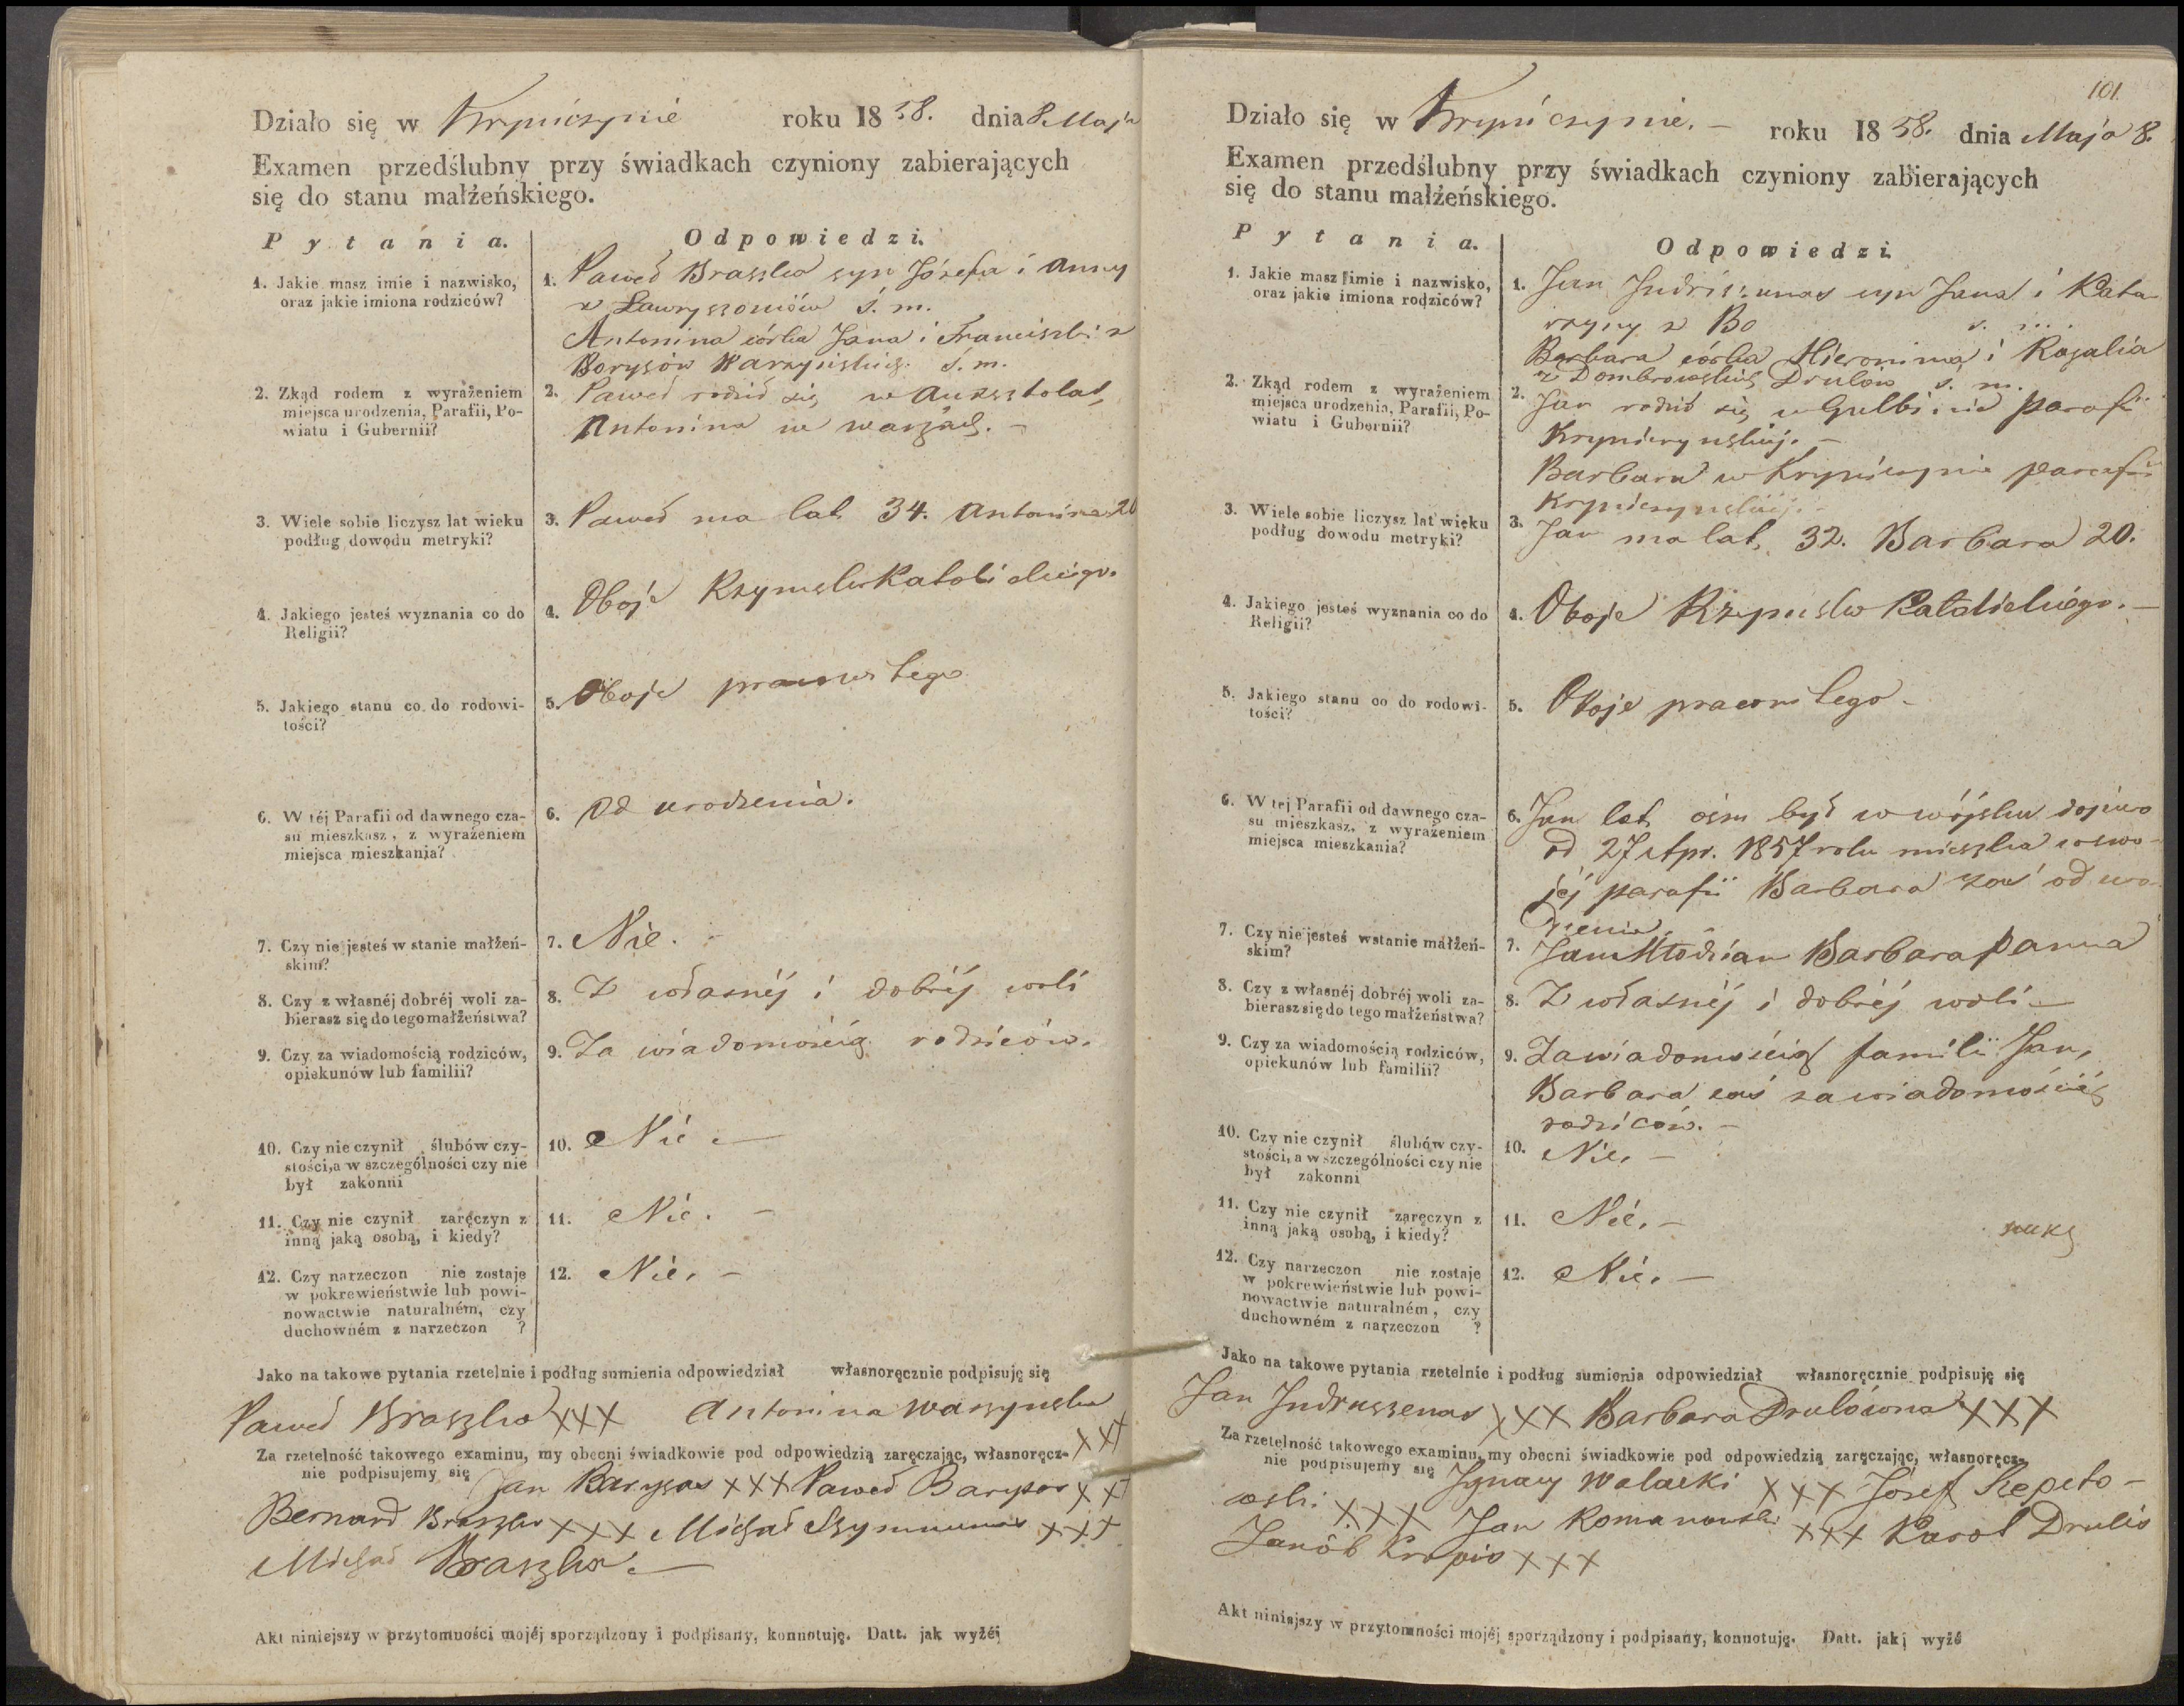 Działo się w Krypiczynie roku 1858. dnia 8. Maja
Examen przedślubny przy świadkach czyniony zabierających
się do stanu małżeńskiego.
Pytania. Odpowiedzi.
1. Jakie masz imie i nazwisko,
oraz jakie imiona rodziców?
1. Paweł Braszko syn Józefa i Anny
z Ławryszoniów ś. m.
Antonina córka Jana i Franciszki z
Borysów ś. m.
2. Zkąd rodem z wyrażeniem
miejsca urodzenia, Parafii, Po-
wiatu i Gubernii?
2. Paweł rodził się w
Antonina w
3. Wiele sobie liczysz lat wieku
podług dowodu metryki?
3. Paweł ma lat 34. Antonina 20
4. Jakiego jesteś wyznania co do
Religii?
4. Oboje Rzymsko Katolickiego.
5. Jakiego stanu co do rodowi-
tości?
5. Oboje prawowitego
6. W téj Parafii od dawnego cza-
su mieszkasz, z wyrażeniem
miejsca mieszkania?
6. Od urodzenia.
7. Czy nie jesteś w stanie małżeń-
skim?
7. Nie. -
8. Czy z własnéj dobréj woli za-
bierasz się do tego małżeństwa?
8. Z własnéj i dobréj woli
9. Czy za wiadomością rodziców,
opiekunów lub familii?
9. Za wiadomością rodziców.
10. Czy nie czynił ślubów czy-
stości, a w szczególności czy nie
był zakonni
10. Nie -
11. Czy nie czynił zaręczyn z
inną jaką osobą, i kiedy?
11. Nie. -
12. Czy narzeczon nie zostaje
w pokrewieństwie lub powi-
nowactwie naturalném, czy
duchowném z narzeczon ?
12. Nie. -
Jako na takowe pytania rzetelnie i podług sumienia odpowiedział własnoręcznie podpisuję się
Paweł Braszko XXX Antonina Warzynska
XXX
Za rzetelność takowego examinu, my obecni świadkowie pod odpowiedzią zaręczając, własnoręcz-
nie podpisujemy się Jan Barysas XXX Paweł Barysas XXX
Bernard Braszko XXX Michał Szymunas XXX
Michał Braszko. -
Akt niniejszy w przytomności mojéj sporządzony i podpisany, konnotuję. Datt. jak wyżéj
101.
Działo się w Krypiczynie. - roku 1858. dnia Maja 8.
Examen przedślubny przy świadkach czyniony zabierających
się do stanu małżeńskiego.
Pytania. Odpowiedzi
1. Jakie masz imie i nazwisko,
oraz jakie imiona rodziców?
1. Jan syn Jana i Kata-
rzyny z Bo
Barbara córka Hieronima i Rozalia
z Dombrowskich Drulów ś. m.
2. Zkąd rodem z wyrażeniem
miejsca urodzenia, Parafii, Po-
wiatu i Gubernii?
2. Jan rodził się w Gulbinie parafii
Krypiczynskiej. -
Barbara w Krypiczynie parafii
Krypiczynskiej. -
3. Wiele sobie liczysz lat wieku
podług dowodu metryki?
3. Jan ma lat, 32. Barbara 20.
4. Jakiego jesteś wyznania co do
Religii?
4. Oboje Rzymsko Katolickiego. -
5. Jakiego stanu co do rodowi-
tości?
5. Oboje prawowitego -
6. W tej Parafii od dawnego cza-
su mieszkasz, z wyrażeniem
miejsca mieszkania?
6. Jan lat ośm był w wójsku dopiero
od 27 Apr. 1857 roku mieszka w swo-
jéj parafii Barbara zaś od uro-
dzenia.
7. Czy nie jesteś wstanie małżeń-
skim?
7. Jan Młodzian Barbara panna
8. Czy z własnéj dobréj woli za-
bierasz się do tego małżeństwa?
8. Z własnéj i dobréj woli -
9. Czy za wiadomością rodziców,
opiekunów lub familii?
9. Za wiadomością familii Jan,
Barbara zaś za wiadomością
rodziców. -
10. Czy nie czynił ślubów czy-
stości, a w szczególności czy nie
był zakonni
10. Nie. -
11. Czy nie czynił zaręczyn z
inną jaką osobą, i kiedy?
11. Nie. -
12. Czy narzeczon nie zostaje
w pokrewieństwie lub powi-
nowactwie naturalném, czy
duchowném z narzeczon ?
12. Nie. -
Jako na takowe pytania rzetelnie i podług sumienia odpowiedział własnoręcznie podpisuję się
Jan Indruszenas XXX Barbara Drulówna XXX
Za rzetelność takowego examinu, my obecni świadkowie pod odpowiedzią zaręczając, własnoręcz-
nie podpisujemy się Ignacy Walacki XXX Józef Rzepeto-
wski XXX Jan Romanowski XXX Karol Drulis
Jakób Kropis XXX
Akt niniejszy w przytomności mojéj sporządzony i podpisany, konnotuję. Datt. jak wyżé